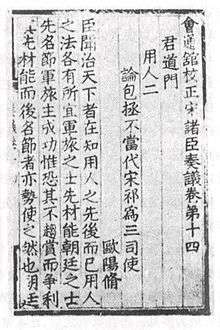 會通館校正宋諸臣奏議卷第十四
君道門
用人二
論包拯不當代宋祁為三司使
歐陽脩
臣聞治天下者在知用人之先後而已用人
之法各有所宜軍旅之士先材能朝廷之士
先名節軍旅主成功惟恐其不趨賞而爭利
先材能而後名節者亦勢使之然也朝廷